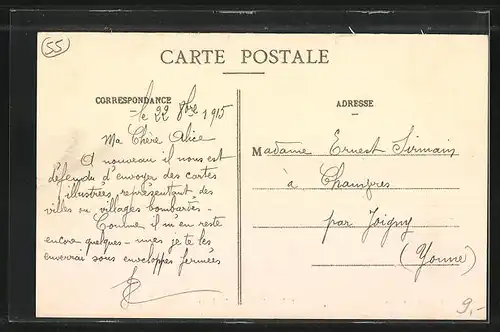 55
CARTE POSTALE
CORRESPONDANCE
le 22 8bre 1915
Ma Chère Alice
A nouveau il nous est
défendu d'envoyer des cartes
illustrées, représentant des
villes ou villages bombardés -
Comme il m'en reste
encore quelques-unes je te les
enverrai sous enveloppes fermées
ADRESSE
Madame Ernest Sirmain
à Champres
par Joigny
(Yonne)
9,-